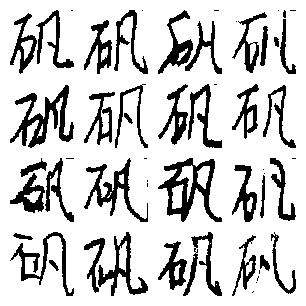 矾矾矾矾
矾矾矾矾
矾矾矾矾
矾矾矾矾